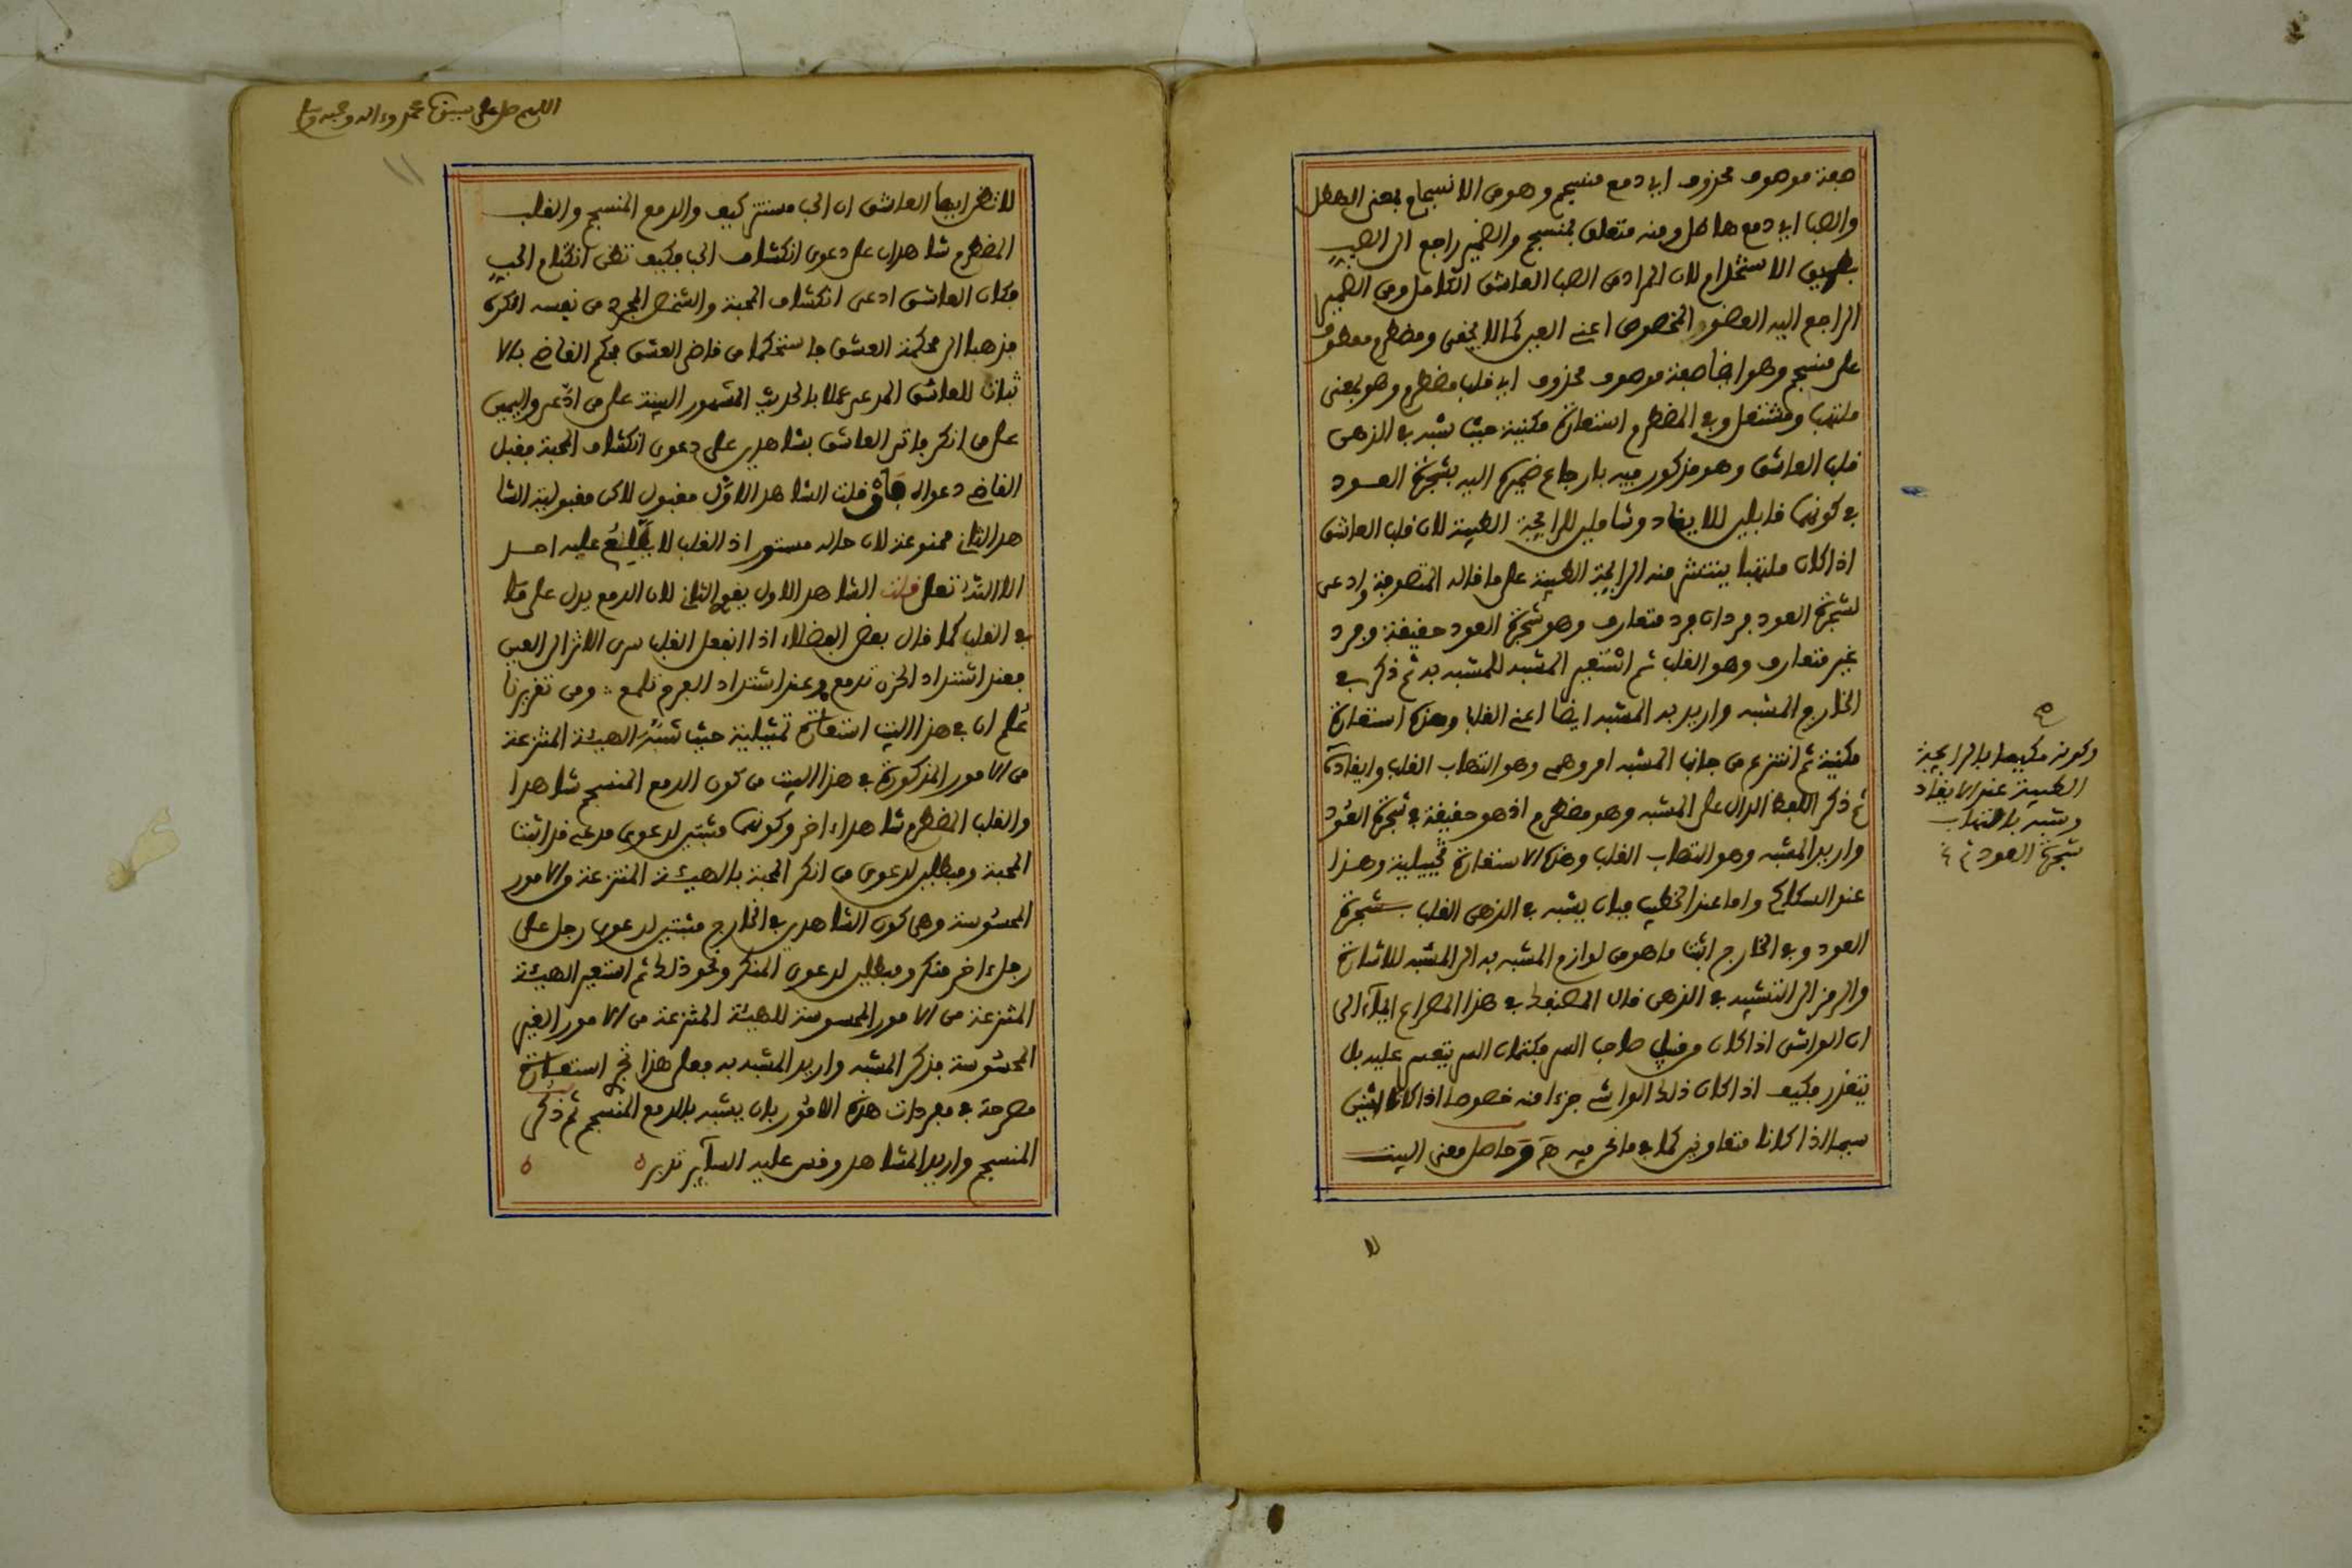 صفة موصوف محذوف اي دمع منسجم وهو من الانسجام بمعنى الهطل
والصب اي دمع هاطل ومنه متعلق بمنسجم والضمير راجع الى الصب
بطريق الاستخدام لان المراد من الصب العاشق الكامل ومن الضمير
الراجع اليه العضو المخصوص اعني العين كما لا يخفى ومضطرم معطوف
على منسجم وهو ايضا صفة موصوف محذوف اي قلب مضطرم وهو بمعنى
ملتهب ومشتعل وفي المضطرم استعارة مكنية حيث شبه في الذهن
قلب العاشق وهو مذكور فيه بارجاع ضميره اليه بشجرة العود
في كونهما قابلين للايقاد وشاملين للرايحة الطيبة لان قلب العاشق
اذا كان ملتهبا ينتشر منه الرايحة الطيبة على ما قاله المتصوفة وادعى
لشجرة العود فردان فرد متعارف وهو شجرة العود حقيقة وفرد
غير متعارف وهو القلب ثم استعير المشبه للمشبه به ثم ذكر في
الخارج المشبه واريد به المشبه ايضا اعني القلب وهذه استعارة
مكنية ثم انتزع من جانب المشبه امر وهمي وهو التهاب القلب وايقاده
ثم ذكر اللفظ الدال على المشبه وهو مضطرم اذ هو حقيقة في شجرة العود
واريد المشبه وهو التهاب القلب وهذه الاستعارة تخييلية وهذا
عند السكاكي واما عند الخطيب فبان يشبه في الذهن القلب بشجرة
العود وفي الخارج اثبت ما هو من لوازم المشبه به الى المشبه للاشارة
والرمز الى التشبيه في الذهن قال المصنف في هذا المصراع ايماء الى
ان الواشي اذا كان من قبل صاحب السر فكتمان السر يتعسر عليه بل
يتعذر فكيف اذا كان ذلك الواشي جزءا منه خصوصا اذا كانا اثنين
سيما اذا كانا متعاونين كما في ما نحن فيه وحاصل معنى البيت
وكونه مكيفا بالرايحة
الطيبة عند الايقاد
وشبه بالتهاب
شجرة العود
اللهم صل على سيدنا محمد وءاله وصحبه وسلم
١١
لا تظن ايها العاشق ان الحب مستتر كيف والدمع المنسجم والقلب
المضطرم شاهدان على دعوى انكشاف الحب فكيف تظن انكتام الحب
فكان العاشق ادعى انكشاف المحبة والشخص المجرد من نفسه انكره
فذهبا الى محكمة العشق فاستحكما من قاضي العشق فحكم القاضي بالا
ثبات للعاشق المدعي عملا بالحديث المشهور البينة على من ادعى واليمين
على من انكر فاتى العاشق بشاهدين على دعوى انكشاف المحبة فقبل
القاضي دعواه فان قلت الشاهد الاول مقبول لاكن مقبولية الشا
هد الثاني ممنوعة لان حاله مستور اذ القلب لا يطلع عليه احد
الا الله تعلى قلت الشاهد الاول يقوي الثاني لان الدمع يدل على ما
في القلب كما قال بعض الفضلاء اذا انفعل القلب سرى الاثر الى العين
فعند اشتداد الحزن تدمع وعند اشتداد الفرح تلمع ومن تقريرنا
علم ان في هذا البيت استعارة تمثيلية حيث شبه الهيئة المنتزعة
من الامور المذكورة في هذا البيت من كون الدمع المنسجم شاهدا
والقلب المضطرم شاهدا ءاخر وكونهما مثبتين لدعوى مدعي قد اثبت
المحبة ومبطلين لدعوى من انكر المحبة بالهيئة المنتزعة من الامور
المحسوسة وهي كون الشاهدين في الخارج مثبتين لدعوى رجل على
رجل ءاخر منكر ومبطلين لدعوى المنكر ونحو ذلك ثم استعير الهيئة
المنتزعة من الامور المحسوسة للهيئة المنتزعة من الامور الغير
المحسوسة فذكر المشبه واريد المشبه به فعلى هذا تجري استعارة
مصرحة في مفردات هذه الامور بان يشبه بالدمع المنسجم ثم ذكر
المنسجم واريد المشاهد وقس عليه الساير تدبر